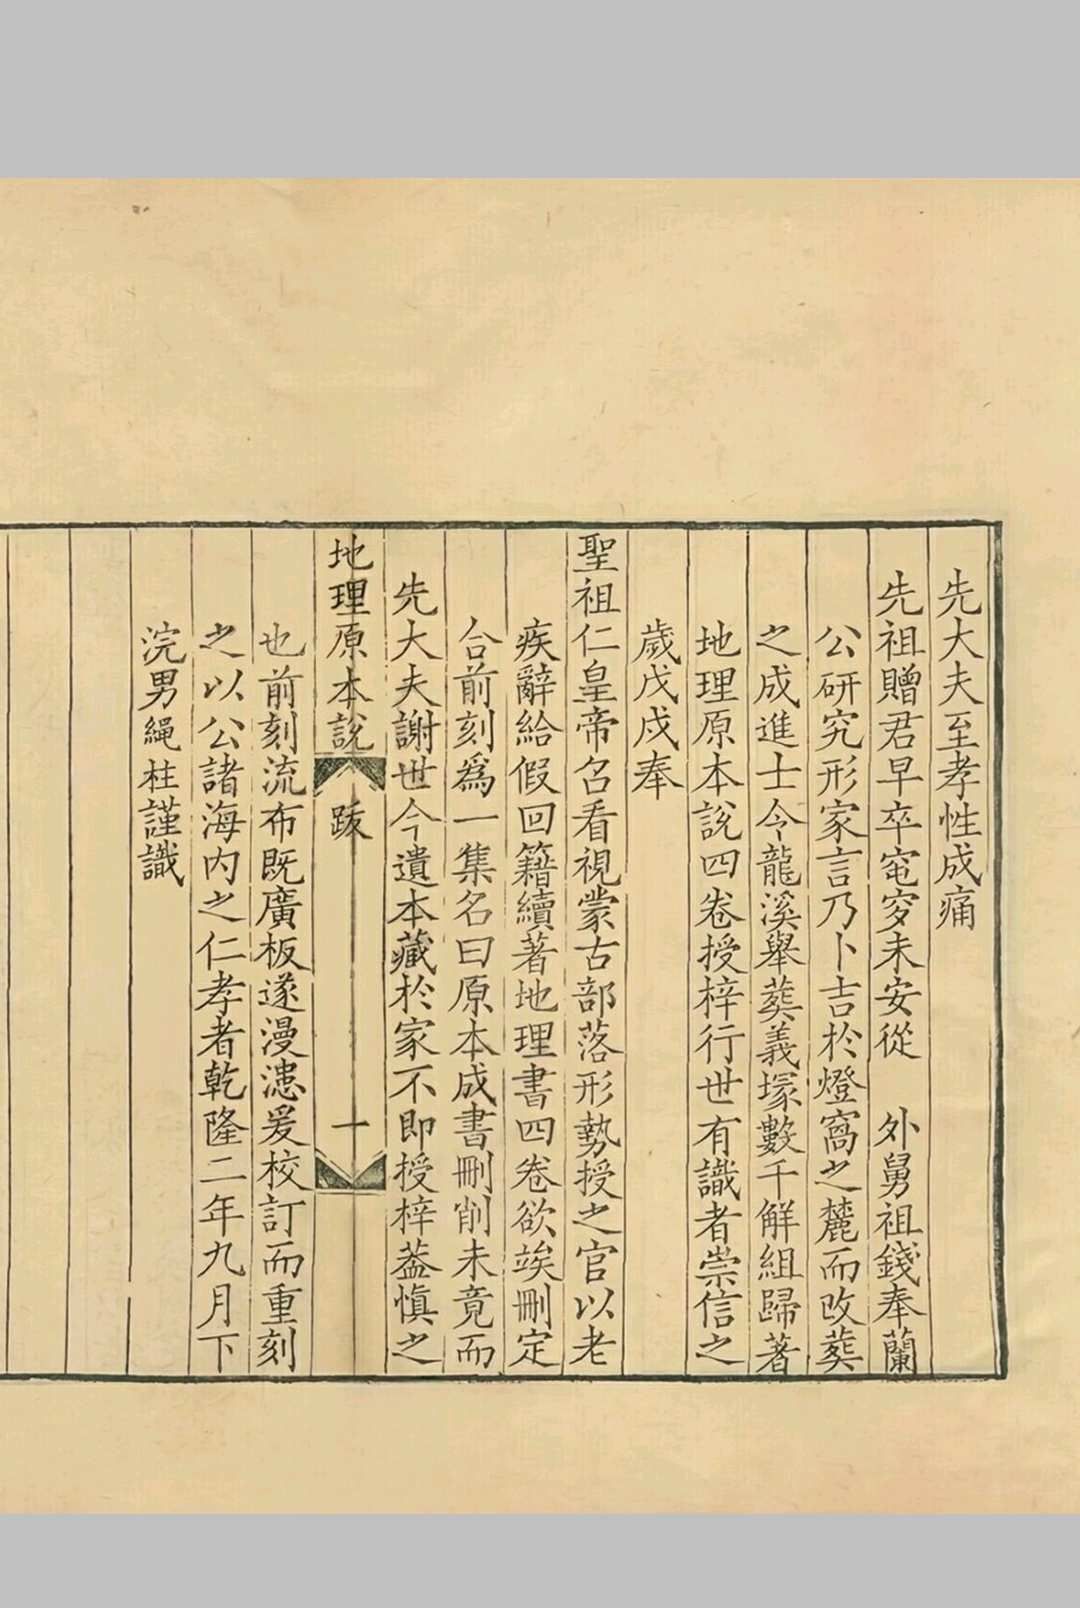 先大夫至孝性成痛
先祖贈君早卒窀穸未安從　外舅祖錢奉蘭
公研究形家言乃卜吉於燈窩之麓而改葬
之成進士令龍溪舉葬義塚數千解組歸著
地理原本說四卷授梓行世有識者崇信之
歲戊戌奉
聖祖仁皇帝召看視蒙古部落形勢授之官以老
疾辭給假回籍續著地理書四卷欲竢刪定
合前刻爲一集名曰原本成書刪削未竟而
先大夫謝世今遺本藏於家不即授梓葢慎之
地理原本說　跋　一
也前刻流布既廣板遂漫漶爰校訂而重刻
之以公諸海内之仁孝者乾隆二年九月下
浣男繩柱謹識